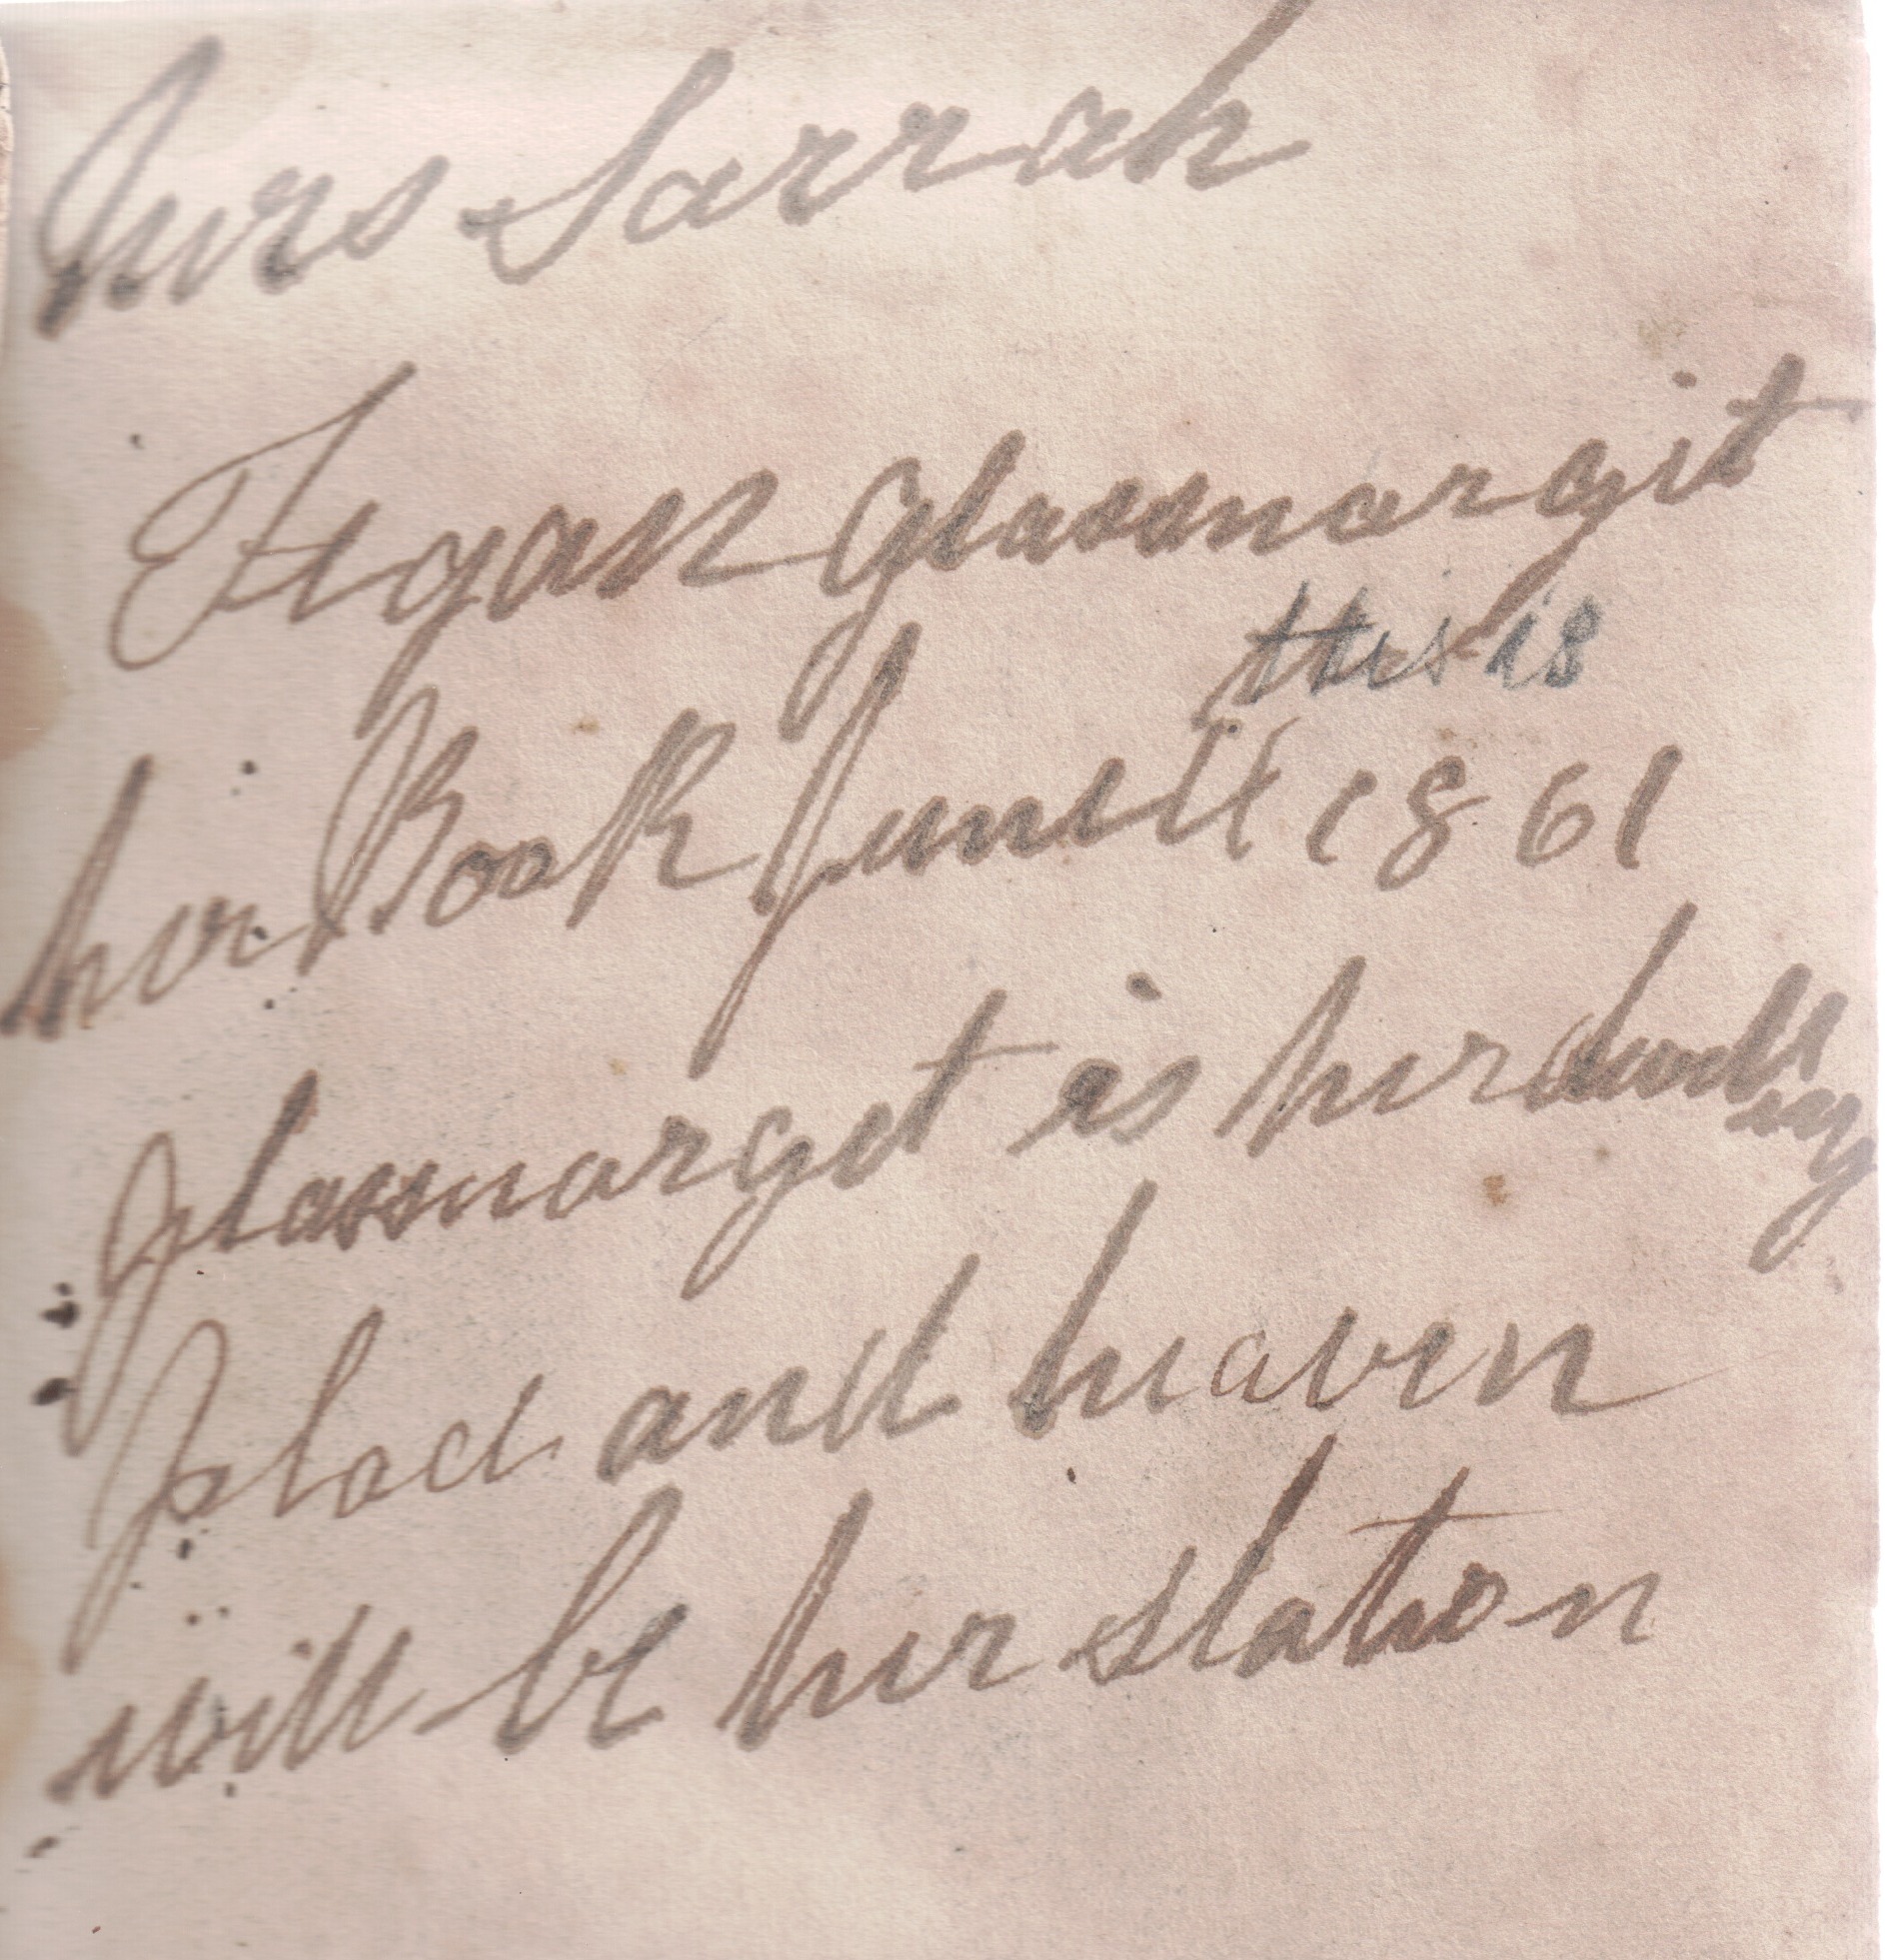 Mrs Sarrah
Fegan Glassnargit
this is
her Book June 11 1861
Glassnarget is her dwelling
place and heaven
will be her station